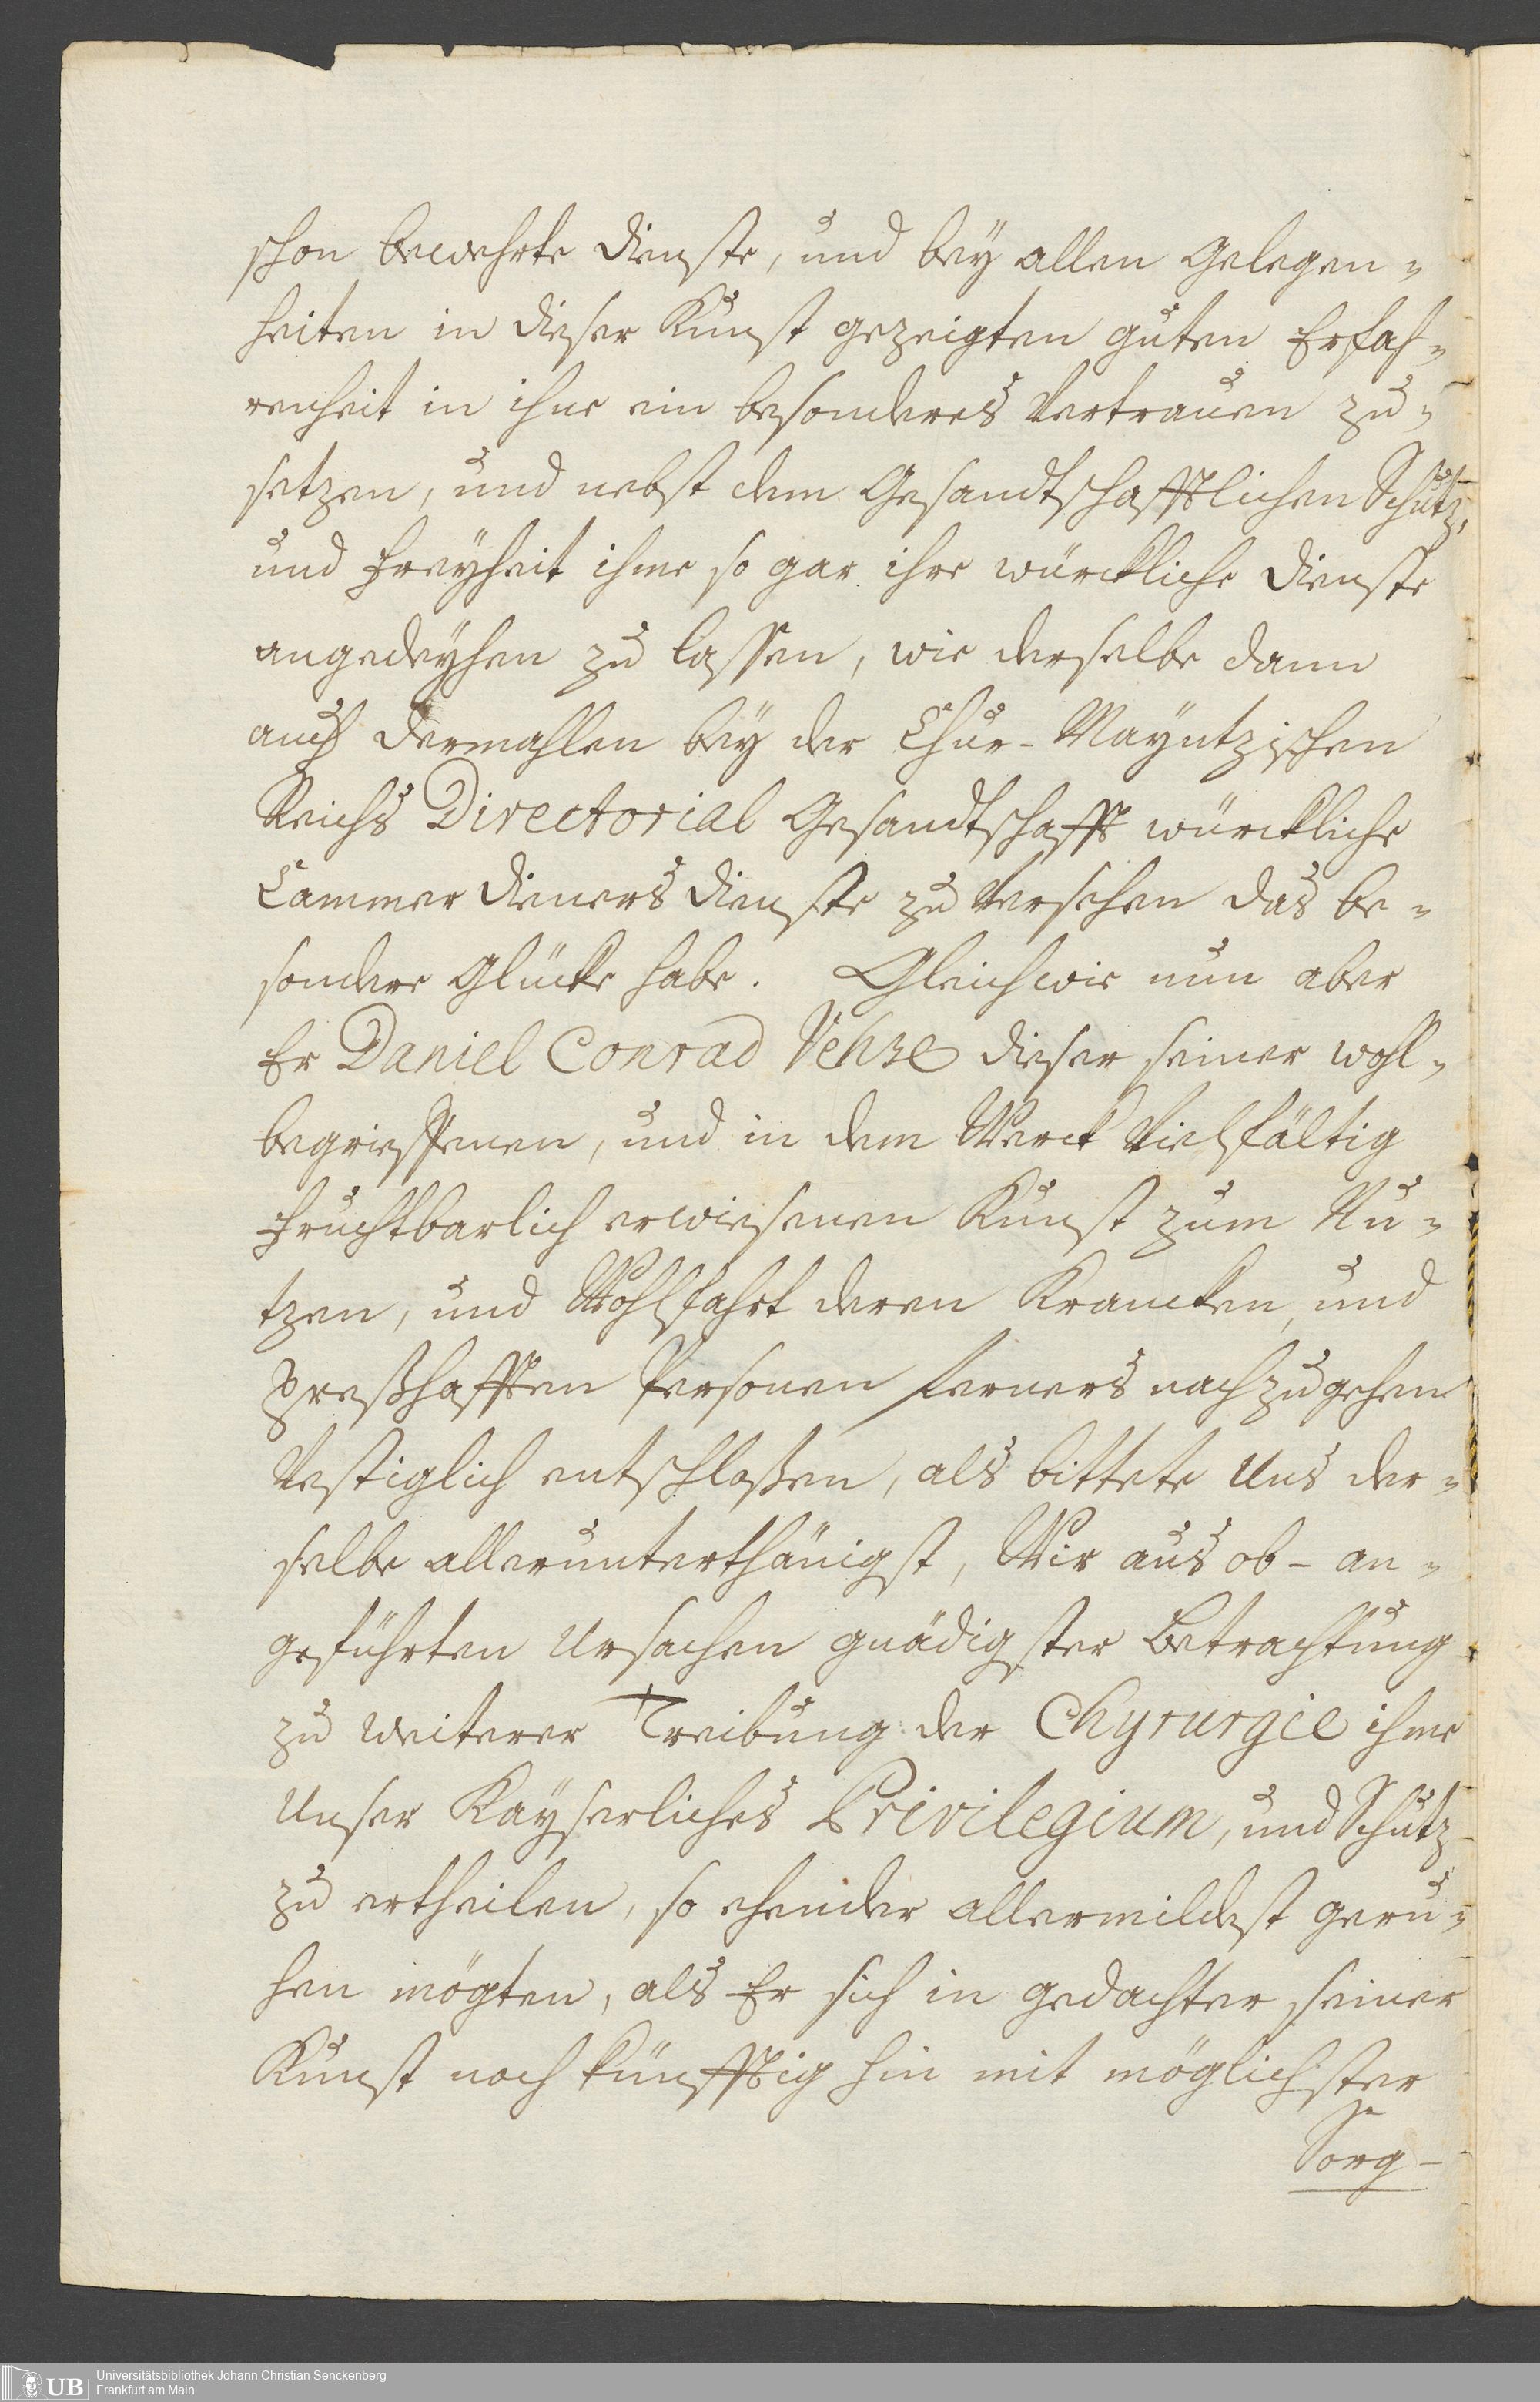 schon bewehrte Dienste, und beÿ allen Gelegen-
heiten in dieser Kunst gezeigten guten Erfah-
renheit in ihne ein besonderes Vertrauen zu-
setzen, und nebst dem Gesandtschafftlichen Schutz,
und Freÿheit ihme so gar ihre würckliche Dienste
angedeÿhen zu lassen, wie derselbe dann
auch dermahlen beÿ der Chur-Mayntzischen
Reichs Directorial Gesandtschafft würckliche
Cammer Dieners Dienste zu versehen das be-
sondere Glücke habe. Gleichwie nun aber
Er Daniel Conrad Vehse dieser seiner wohl-
begrieffenen, und in dem Werck vielfältig
fruchtbarlich erwiesenen Kunst zum Nu-
tzen, und Wohlfahrt deren Krancken, und
preßhafften Personen ferners nachzugehen
vestiglich entschloßen, als bittete Uns der-
selbe allerunterthänigst, Wir aus ob-an-
geführten Ursachen gnädigster Betrachtung
zu weiterer Treibung der Chyrurgie ihme
Unser Kayserliches Privilegium, und Schutz
zu ertheilen, so ehender allermildest geru-
hen mögten, als Er sich in gedachter seiner
Kunst noch künfftig hin mit möglichster
Sorg-
UB
Universitätsbibliothek Johann Christian Senckenberg
Frankfurt am Main